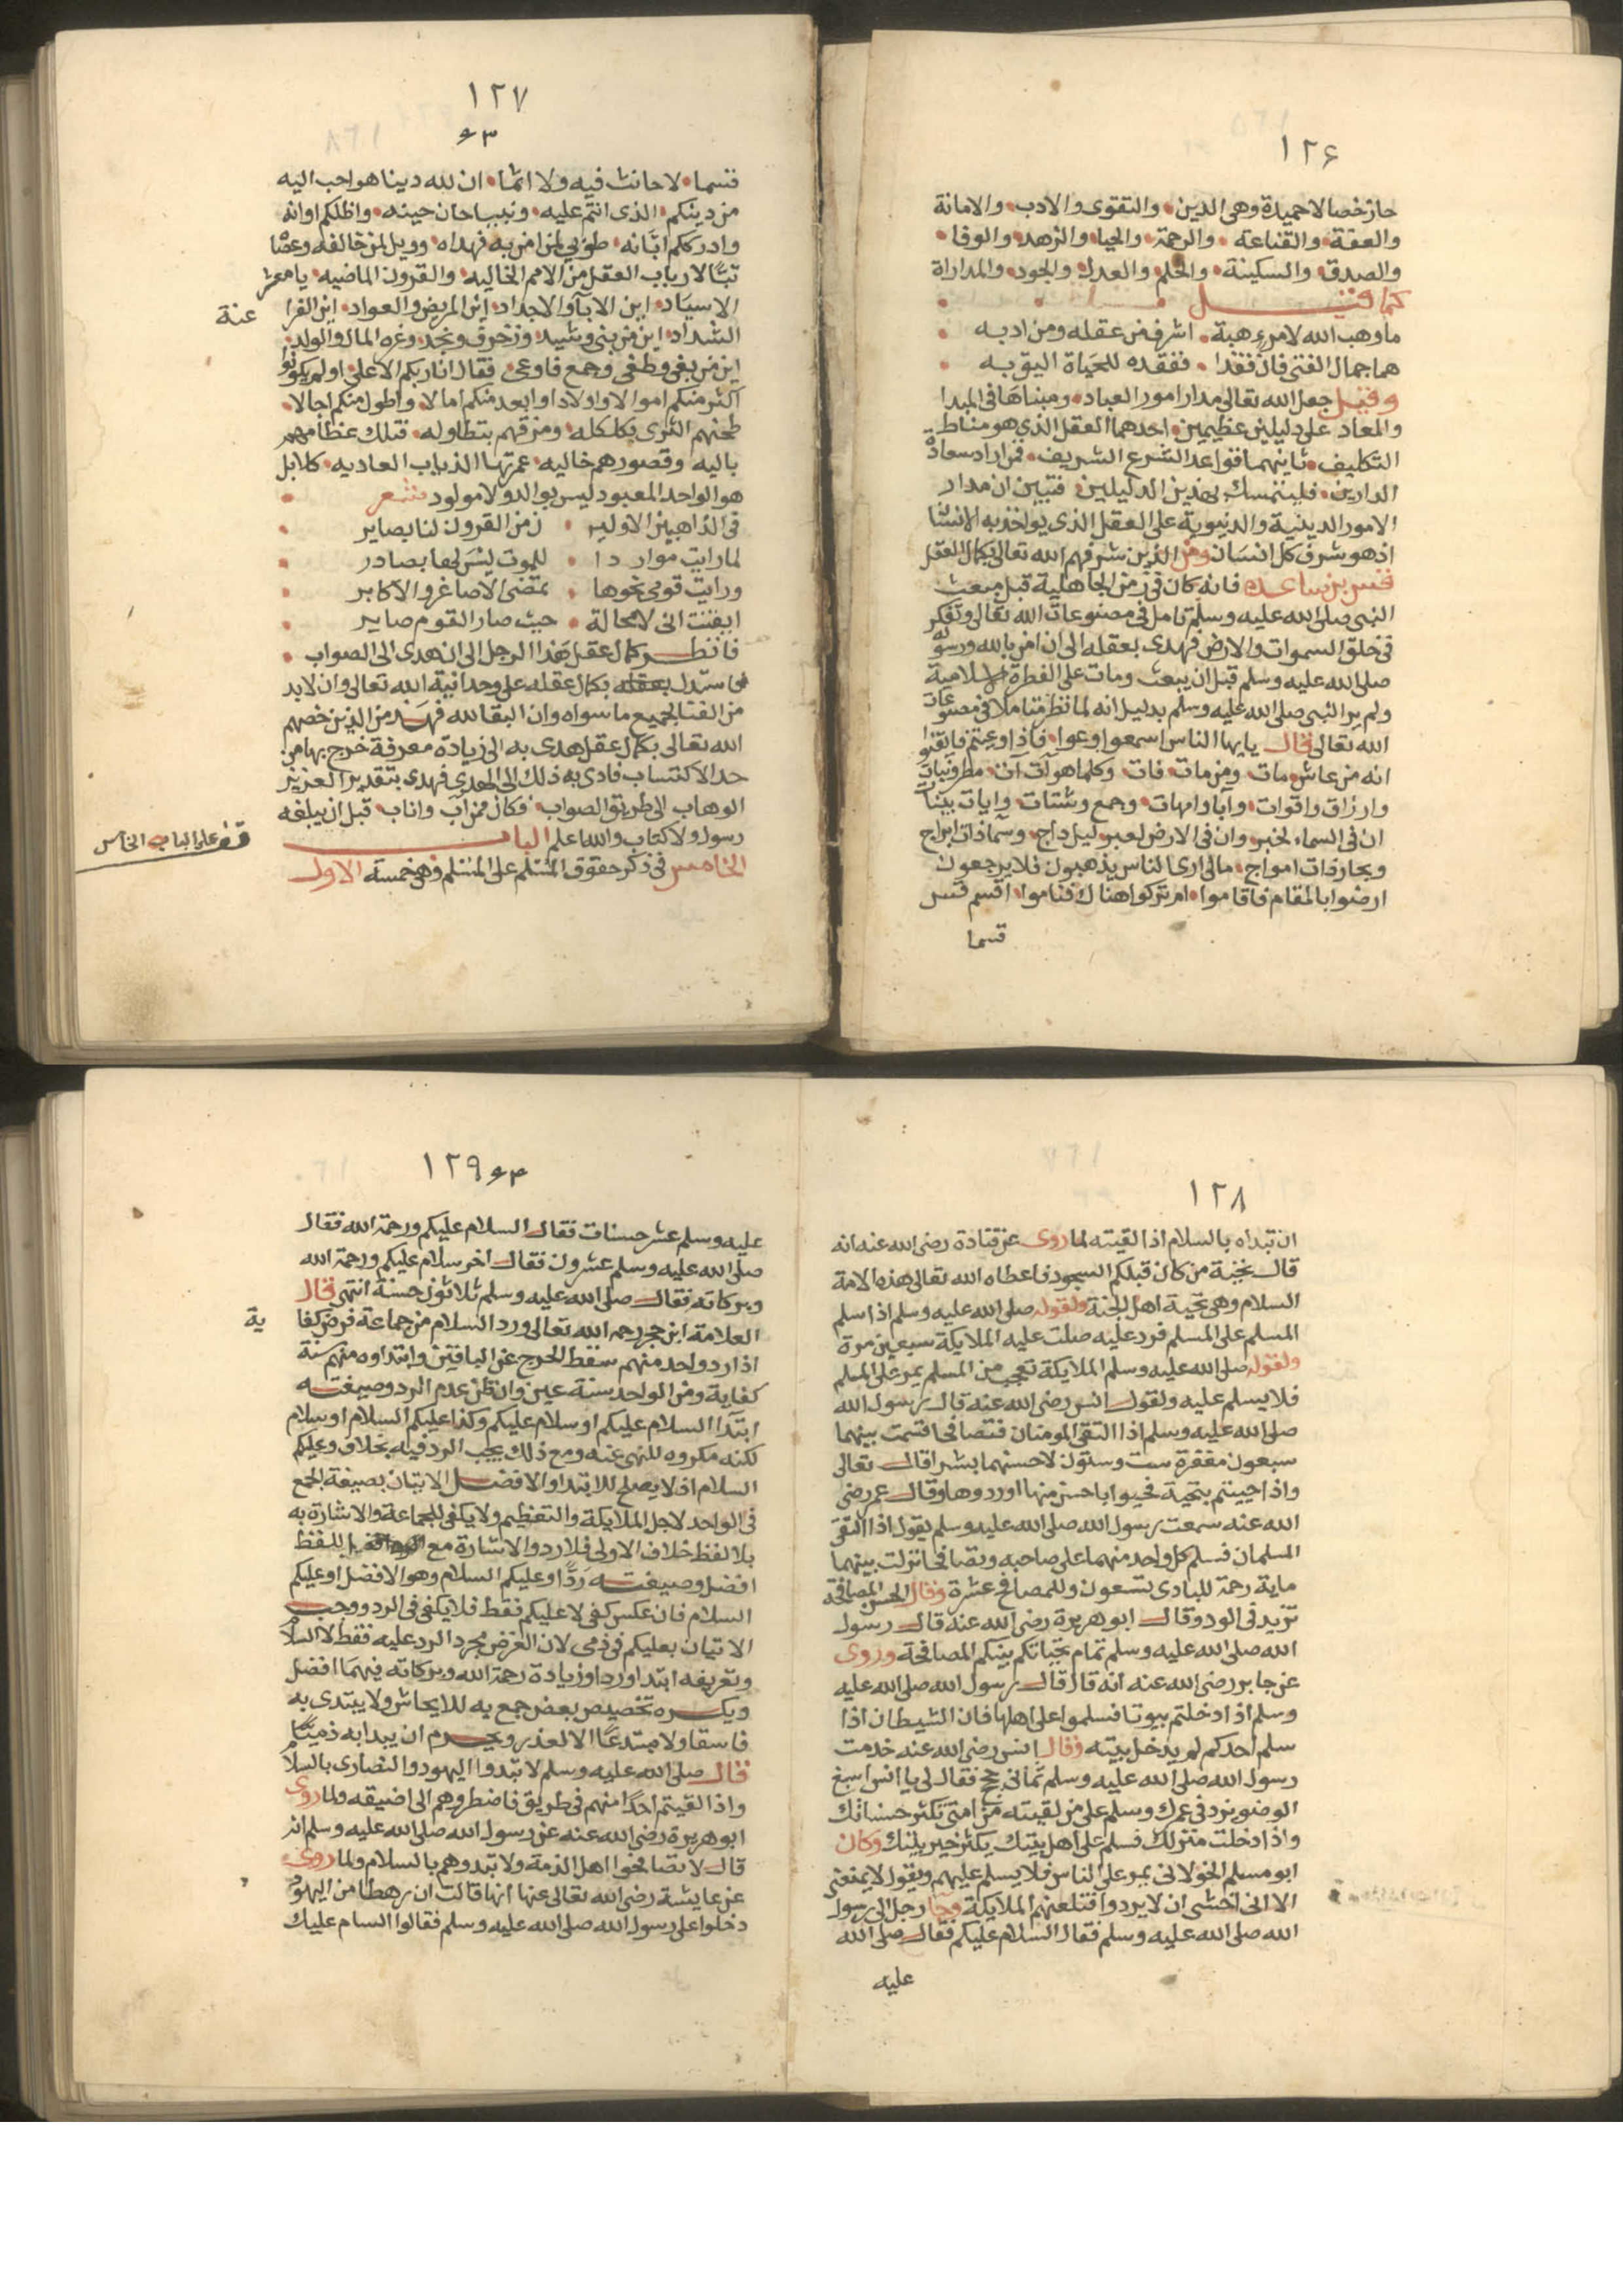 ١٢٦
حاز خصالا حميدة وهى الدين والتقوى والادب والامانة
والعفة والقناعة والرحمة والحيا والزهد والوفا
والصدق والسكينة والحلم والعدل والجود والمداراة
كما قيل
ما وهب الله لامرء هبة اشرف من عقله ومن ادبه
هما جمال الفتى فان فقدا ففقده للحياة اليق به
وقيل جعل الله تعالى مدار امور العباد ومبناها فى المبدا
والمعاد على دليلين عظيمين احدهما العقل الذى هو مناط
التكليف ثانيهما قواعد الشرع الشريف فمن اراد سعادة
الدارين فليتمسك بهذين الدليلين فتبين ان مدار
الامور الدينية والدنيوية على العقل الذى يواخذ به الانسان
اذ هو شرف كل انسان ومن الذين شرفهم الله تعالى بكمال العقل
قس بن ساعده فانه كان فى زمن الجاهلية قبل مبعث
النبى صلى الله عليه وسلم تامل فى مصنوعات الله تعالى وتفكر
فى خلق السموات والارض فهدى بعقله الى ان امن بالله ورسوله
صلى الله عليه وسلم قبل ان يبعث ومات على الفطرة الاسلامية
ولم ير النبى صلى الله عليه وسلم بدليل انه لما نظر متاملا فى مصنوعات
الله تعالى قال يايها الناس اسمعوا وعوا فاذا وعيتم فايقنوا
انه من عاش مات ومن مات فات وكلما هو آت آت مطر ونبات
وارزاق واقوات وآبا وامهات وجمع وشتات وايات بينات
ان فى السماء لخبر وان فى الارض لعبر ليل داج وسما ذات ابراج
وبحار ذات امواج مالى ارى الناس يذهبون فلا يرجعون
ارضوا بالمقام فاقاموا ام تركوا هناك فناموا اقسم قس
قسما
١٢٧
قسما لا حانث فيه ولا اثما ان لله دينا هو احب اليه
من دينكم الذى انتم عليه ونبيا حان حينه واظلكم اوانه
وادرككم ابانه طوبى لمن امن به فهداه وويل لمن خالفه وعصا
تبا لارباب العقل من الامم الخاليه والقرون الماضيه يا معشر
الاسياد اين الابا والاجداد اين المريض والعواد اين الفرا
عنة
الشداد اين من بنى وشيد وزخرف ونجد وغره المال والولد
اين من بغى وطغى وجمع فاوعى فقال انا ربكم الاعلى اولم يكونوا
اكثر منكم اموالا واولادا وابعد منكم امالا واطول منكم اجالا
طحنهم الثرى بكلكله ومزقهم بتطاوله فتلك عظامهم
باليه وقصورهم خاليه عمرتها الذياب العاديه كلا بل
هو الواحد المعبود ليس بوالد ولا مولود شعر
فى الذاهبين الاولين من القرون لنا بصاير
لما رايت مواردا للموت ليس لها بصادر
ورايت قومى نحوها تمضى الاصاغر والاكابر
ايقنت انى لا محالة حيث صار القوم صاير
فانظر كمال عقل هذا الرجل الى ان هدى الى الصواب
فاستدل بكمال عقله على وحدانية الله تعالى وان لا بد
من الفنا لجميع ما سواه وان البقا لله فهو من الذين خصهم
الله تعالى بكمال عقل هدى به الى زيادة معرفة خرج بها من
حد الاكتساب فادى به ذلك الى الهدى فهدى بتقدير العزيز
الوهاب الى طريق الصواب فكان ممن آب واناب قبل ان يبلغه
رسول ولا كتاب والله اعلم الباب
قف على الباب الخامس
الخامس فى ذكر حقوق المسلم على المسلم وهى خمسة الاول
١٢٨
ان تبداه بالسلام اذا لقيته لما روى عن قتادة رضى الله عنه انه
قال تحية من كان قبلكم السجود فاعطاه الله تعالى هذه الامة
السلام وهى تحية اهل الجنة ولقوله صلى الله عليه وسلم اذا سلم
المسلم على المسلم فرد عليه صلت عليه الملايكة سبعين مرة
ولقوله صلى الله عليه وسلم الملايكة تعجب من المسلم يمر على المسلم
فلا يسلم عليه ولقول انس رضى الله عنه قال رسول الله
صلى الله عليه وسلم اذا التقى المومنان فتصافحا قسمت بينهما
سبعون مغفرة ست وستون لاحسنهما بشرا قال تعالى
واذا حييتم بتحية فحيوا باحسن منها او ردوها وقال عمر رضى
الله عنه سمعت رسول الله صلى الله عليه وسلم يقول اذا التقى
المسلمان فسلم كل واحد منهما على صاحبه وتصافحا نزلت بينهما
ماية رحمة للبادى تسعون وللمصافح عشرة وقال الحسن المصافحة
تزيد فى الود وقال ابو هريرة رضى الله عنه قال رسول
الله صلى الله عليه وسلم تمام تحياتكم بينكم المصافحة وروى
عن جابر رضى الله عنه انه قال قال رسول الله صلى الله عليه
وسلم اذا دخلتم بيوتا فسلموا على اهلها فان الشيطان اذا
سلم احدكم لم يدخل بيته وقال انس رضى الله عنه خدمت
رسول الله صلى الله عليه وسلم ثمانى حجج فقال لى يا انس اسبغ
الوضو يزد فى عمرك وسلم على من لقيته من امتى تكثر حسناتك
واذا دخلت منزلك فسلم على اهل بيتك يكثر خير بيتك وكان
ابو مسلم الخولانى يمر على الناس فلا يسلم عليهم ويقول لا يمنعنى
الا انى اخشى ان لا يردوا فتلعنهم الملايكة وجا رجل الى رسول
الله صلى الله عليه وسلم فقال السلام عليكم فقال صلى الله
عليه
١٢٩
عليه وسلم عشر حسنات فقال السلام عليكم ورحمة الله فقال
صلى الله عليه وسلم عشرون فقال اخر سلام عليكم ورحمة الله
وبركاته فقال صلى الله عليه وسلم ثلاثون حسنة انتهى قال
العلامة ابن حجر رحمه الله تعالى ورد السلام من جماعة فرض كفا
ية
اذا رد واحد منهم سقط الحرج عن الباقين وابتداوه منهم سنة
كفاية ومن الواحد سنة عين وان ظن عدم الرد وصيغته
ابتدا السلام عليكم او سلام عليكم وكذا عليكم السلام او سلام
لكنه مكروه للنهى عنه ومع ذلك يجب الرد فيه بخلاف وعليكم
السلام اذ لا يصلح للابتدا والافضل الاتيان بصيغة الجمع
فى الواحد لاجل الملايكة والتعظيم ولا يكفى للجماعة والاشارة به
بلا لفظ خلاف الاولى فلا رد والاشارة مع اللفظ
افضل وصيغته ردا وعليكم السلام وهو الافضل او عليكم
السلام فان عكس كفى لا عليكم فقط فلا يكفى فى الرد ووجب
الاتيان بعليكم فى ذمى لان الغرض مجرد الرد عليه فقط لا السلام
وتعريفه ابتدا وردا وزيادة رحمة الله وبركاته فيهما افضل
ويكره تخصيص بعض جمع به للايحاش ولا يبتدى به
فاسقا ولا مبتدعا الا لعذر ويحرم ان يبدا به ذميا
قال صلى الله عليه وسلم لا تبدوا اليهود والنصارى بالسلام
واذا لقيتم احدا منهم فى طريق فاضطروهم الى اضيقه ولما روى
ابو هريرة رضى الله عنه عن رسول الله صلى الله عليه وسلم انه
قال لا تصافحوا اهل الذمة ولا تبدوهم بالسلام ولما روى
عن عايشة رضى الله تعالى عنها انها قالت ان رهطا من اليهود
دخلوا على رسول الله صلى الله عليه وسلم فقالوا السام عليك